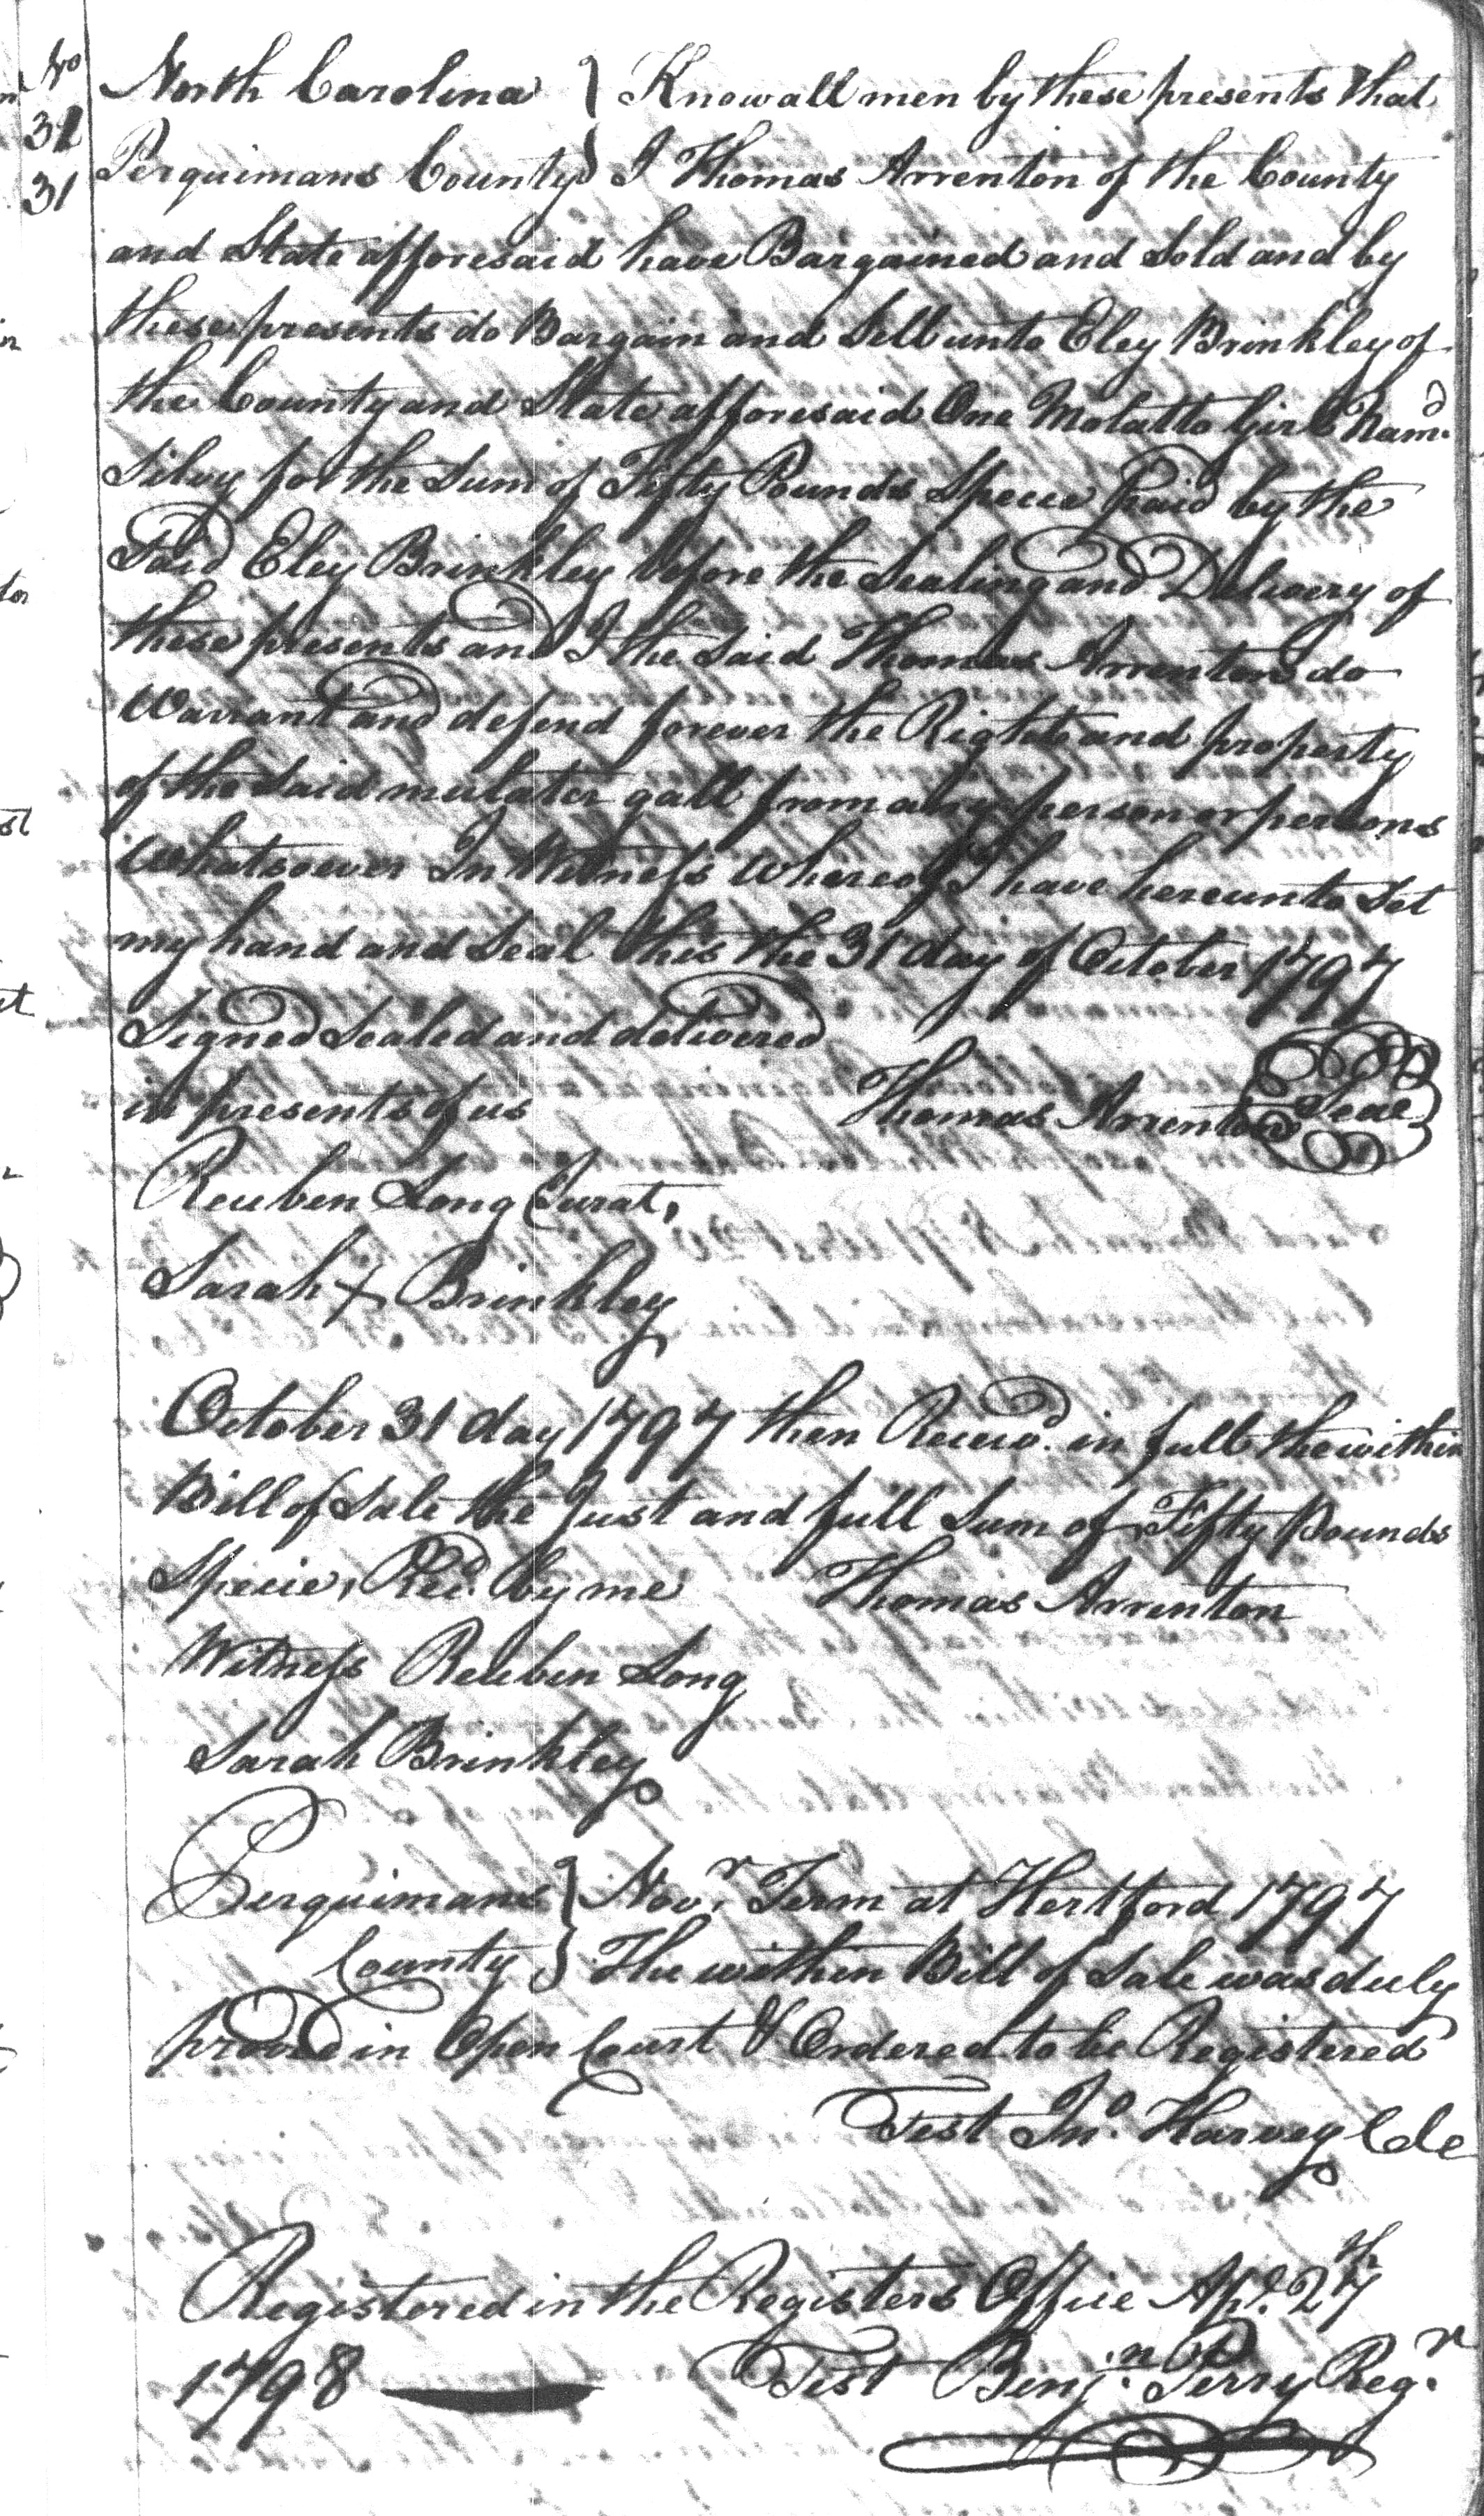 No
31
31
North Carolina } Know all men by these presents that
Perquimans County } I Thomas Arrenton of the County
and State afforesaid have Bargained and Sold and by
these presents do Bargain and Sell unto Eley Brinkley of
the County and State afforesaid One Molatto Girl Namd.
Silvy for the Sum of Fifty Pounds Specie paid by the
Said Eley Brinkley before the Sealing and Delivery of
these presents and I the Said Thomas Arrenton do
Warrant and defend forever the Right and property
of the Said mulater gall from any person or persons
Whatsoever In Witness Whereof I have hereunto Set
my hand and Seal this the 31 day of October 1797
Signed Sealed and delivered
in presents of us Thomas Arrenton Seal
Reuben Long Jurat,
Sarah X Brinkley
October 31 day 1797 then Receivd. in full the within
Bill of Sale the Just and full Sum of Fifty Pounds
Specie, Recd. by me Thomas Arrenton
Witness Reuben Long
Sarah Brinkley
Perquimans } Novr. Term at Hertford 1797
County } The within Bill of Sale was duly
proved in Open Court & Ordered to be Registered
Test Jno. Harvey Cle
Registered in the Registers Office Apl. 27th.
1798 Test Benjn. Perry Regr.